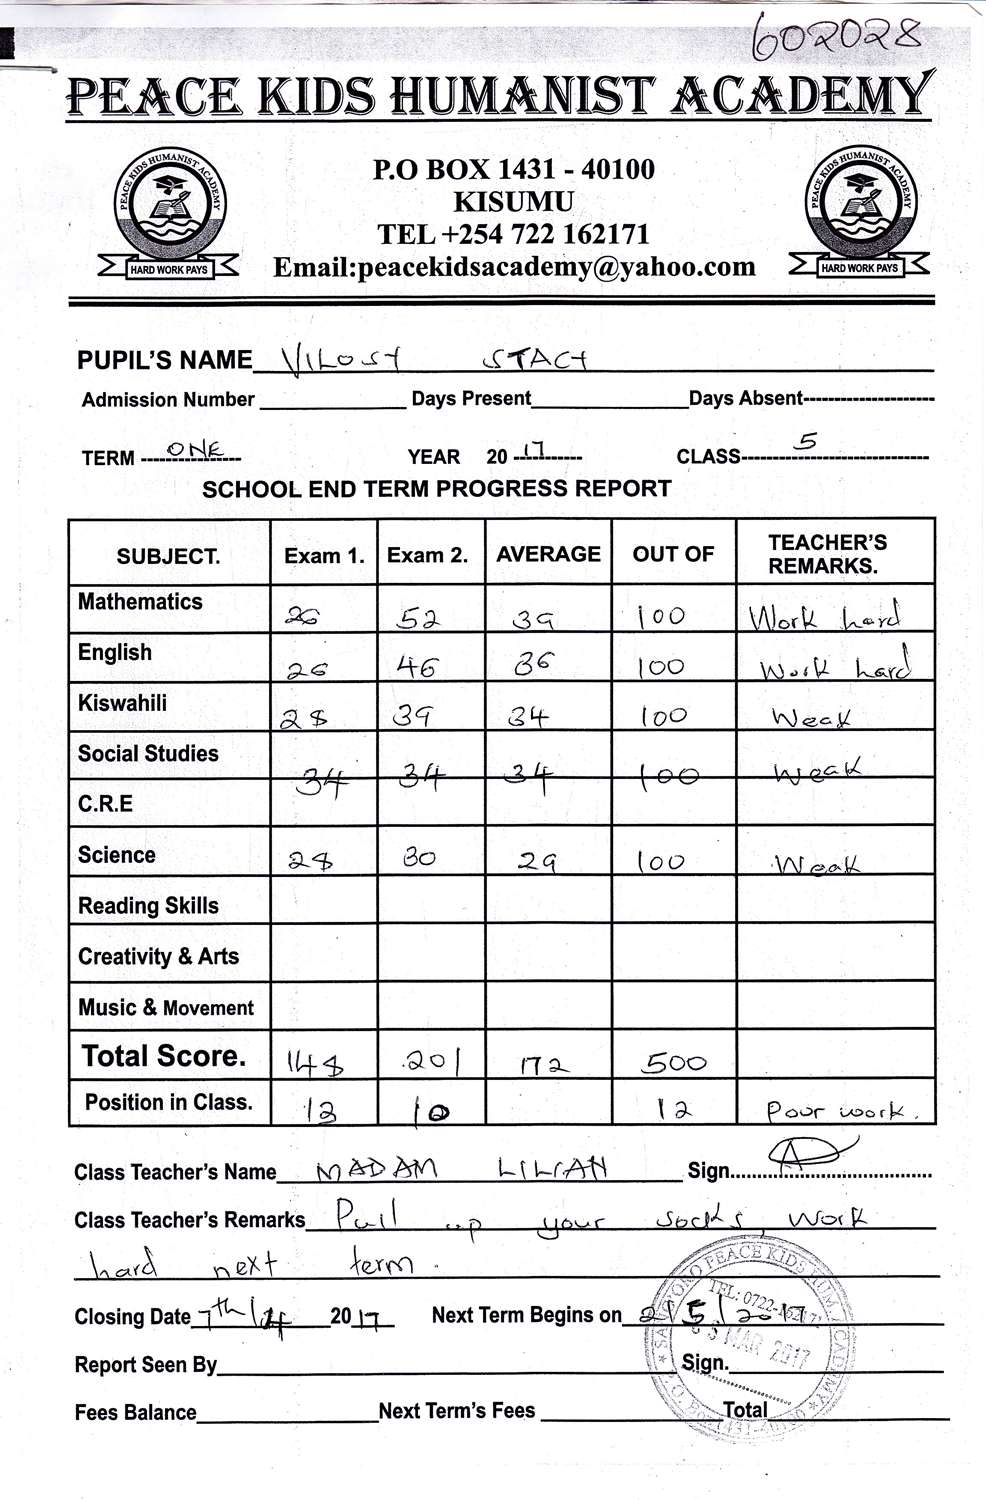 602028
PEACE KIDS HUMANIST ACADEMY
PEACE KIDS HUMANIST ACADEMY
HARD WORK PAYS
P.O BOX 1431 - 40100
KISUMU
TEL +254 722 162171
Email:peacekidsacademy@yahoo.com
PEACE KIDS HUMANIST ACADEMY
HARD WORK PAYS
PUPIL'S NAME STACY
Admission Number Days Present Days Absent
TERM ONE YEAR 20 17 CLASS 5
SCHOOL END TERM PROGRESS REPORT
SUBJECT. Exam 1. Exam 2. AVERAGE OUT OF TEACHER'S REMARKS.
Mathematics 26 52 39 100 Work hard
English 26 46 36 100 Work hard
Kiswahili 28 39 34 100 Weak
Social Studies 34 34 34 100 Weak
C.R.E
Science 28 30 29 100 Weak
Reading Skills
Creativity & Arts
Music & Movement
Total Score. 148 201 172 500
Position in Class. 12 10 12 Pour work.
Class Teacher's Name MADAM LILIAN Sign.
Class Teacher's Remarks Pull up your socks, work
hard next term.
Closing Date 7th/4 2017 Next Term Begins on 2/5/2017
Report Seen By Sign.
Fees Balance Next Term's Fees Total
PEACE KIDS HUM ACADEMY
TEL: 0722-162171
MAR 2017
P.O. Box 1431-40100